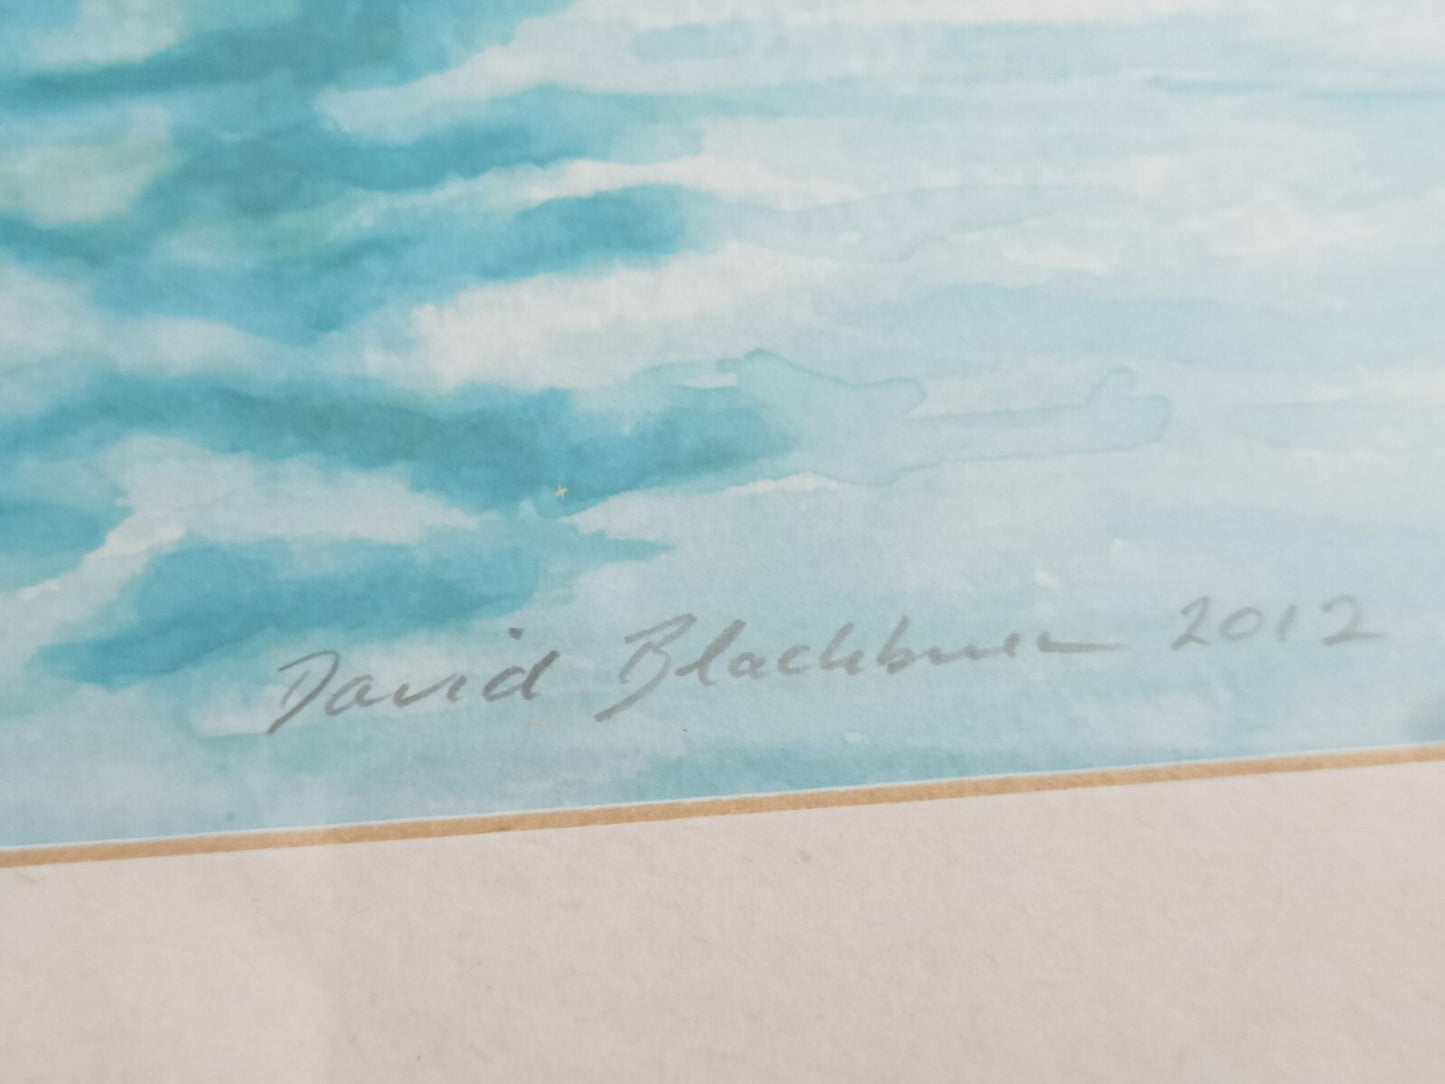 David Blackburn 2012